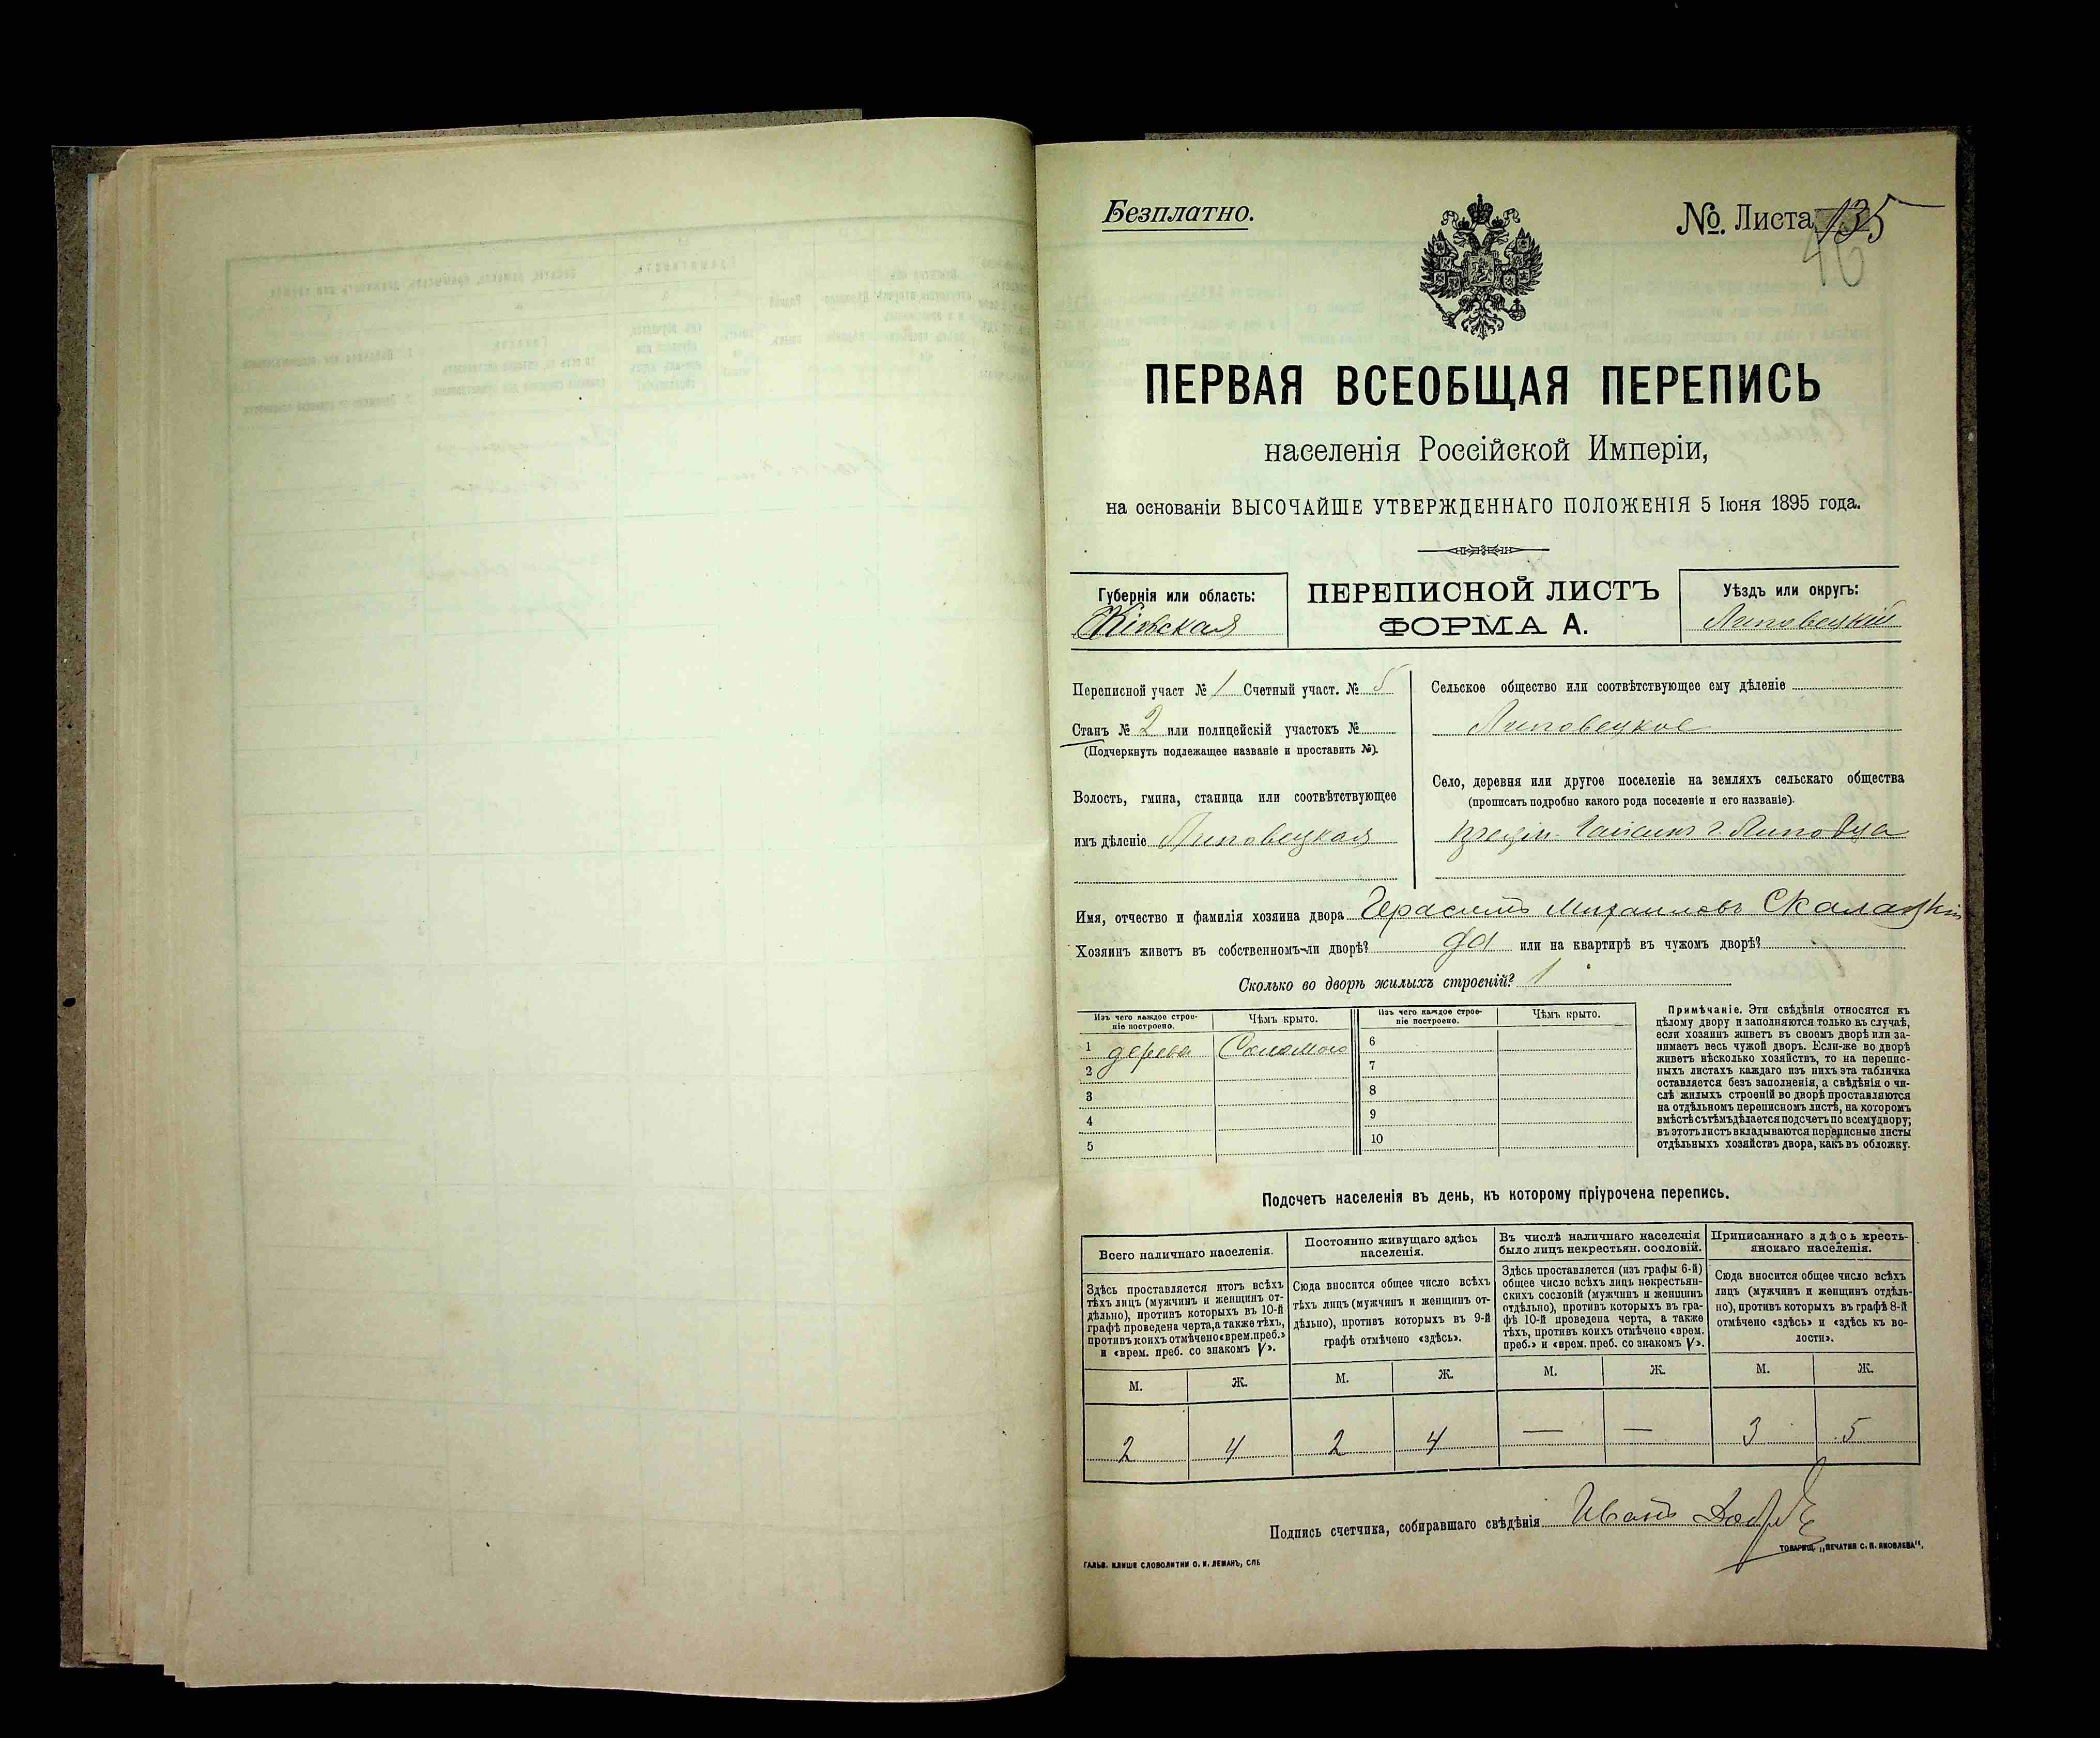 Безплатно.
№. Листа 135
46
ПЕРВАЯ ВСЕОБЩАЯ ПЕРЕПИСЬ
населенія Россійской Имперіи,
на основаніи ВЫСОЧАЙШЕ УТВЕРЖДЕННАГО ПОЛОЖЕНІЯ 5 Іюня 1895 года.
Губернія или область:
Кіевская
ПЕРЕПИСНОЙ ЛИСТЪ
ФОРМА А.
Уѣздъ или округъ:
Липовецкій
Переписной участ № 1 Счетный участ. № 5
Станъ № 2 или полицейскій участокъ №
(Подчеркнуть подлежащее названіе и проставить №).
Волость, гмина, станица или соотвѣтствующее
имъ дѣленіе Липовецкая
Сельское общество или соотвѣтствующее ему дѣленіе
Липовецкое
Село, деревня или другое поселеніе на земляхъ сельскаго общества
(прописать подробно какого рода поселеніе и его названіе).
г. Липовца
Имя, отчество и фамилія хозяина двора Герасимъ Михаиловъ Скалацкій
Хозяинъ живетъ въ собственномъ-ли дворѣ? да или на квартирѣ въ чужомъ дворѣ?
Сколько во дворѣ жилыхъ строеній? 1
Изъ чего каждое строе-
ніе построено.
Чѣмъ крыто.
Изъ чего каждое строе-
ніе построено.
Чѣмъ крыто.
1 дерева Соломою 6
2 7
3 8
4 9
5 10
Примѣчаніе. Эти свѣдѣнія относятся къ
цѣлому двору и заполняются только въ случаѣ,
если хозяинъ живетъ въ своемъ дворѣ или за-
нимаетъ весь чужой дворъ. Если-же во дворѣ
живетъ нѣсколько хозяйствъ, то на перепис-
ныхъ листахъ каждаго изъ нихъ эта табличка
оставляется безъ заполненія, а свѣдѣнія о чи-
слѣ жилыхъ строеній во дворѣ проставляются
на отдѣльномъ переписномъ листѣ, на которомъ
вмѣстѣ съ тѣмъ дѣлается подсчетъ по всему двору;
въ этотъ листъ вкладываются переписные листы
отдѣльныхъ хозяйствъ двора, какъ въ обложку.
Подсчетъ населенія въ день, къ которому пріурочена перепись.
Всего наличнаго населенія.
Здѣсь проставляется итогъ всѣхъ
тѣхъ лицъ (мужчинъ и женщинъ от-
дѣльно), противъ которыхъ въ 10-й
графѣ проведена черта, а также тѣхъ,
противъ коихъ отмѣчено «врем. преб.»
и «врем. преб. со знакомъ V».
Постоянно живущаго здѣсь
населенія.
Сюда вносится общее число всѣхъ
тѣхъ лицъ (мужчинъ и женщинъ от-
дѣльно), противъ которыхъ въ 9-й
графѣ отмѣчено «здѣсь».
Въ числѣ наличнаго населенія
было лицъ некрестьян. сословій.
Здѣсь проставляется (изъ графы 6-й)
общее число всѣхъ лицъ некрестьян-
скихъ сословій (мужчинъ и женщинъ
отдѣльно), противъ которыхъ въ гра-
фѣ 10-й проведена черта, а также
тѣхъ, противъ коихъ отмѣчено «врем.
преб.» и «врем. преб. со знакомъ V».
Приписаннаго здѣсь кресть-
янскаго населенія.
Сюда вносится общее число всѣхъ
лицъ (мужчинъ и женщинъ отдѣль-
но), противъ которыхъ въ графѣ 8-й
отмѣчено «здѣсь» и «здѣсь къ во-
лости».
М. Ж. М. Ж. М. Ж. М. Ж.
2 4 2 4 — — 3 5
Подпись счетчика, собиравшаго свѣдѣнія Иванъ
ГАЛЬВ. КЛИШЕ СЛОВОЛИТНИ О. И. ЛЕМАНЪ, СПБ
ТОВАРИЩ. „ПЕЧАТНЯ С. П. ЯКОВЛЕВА".